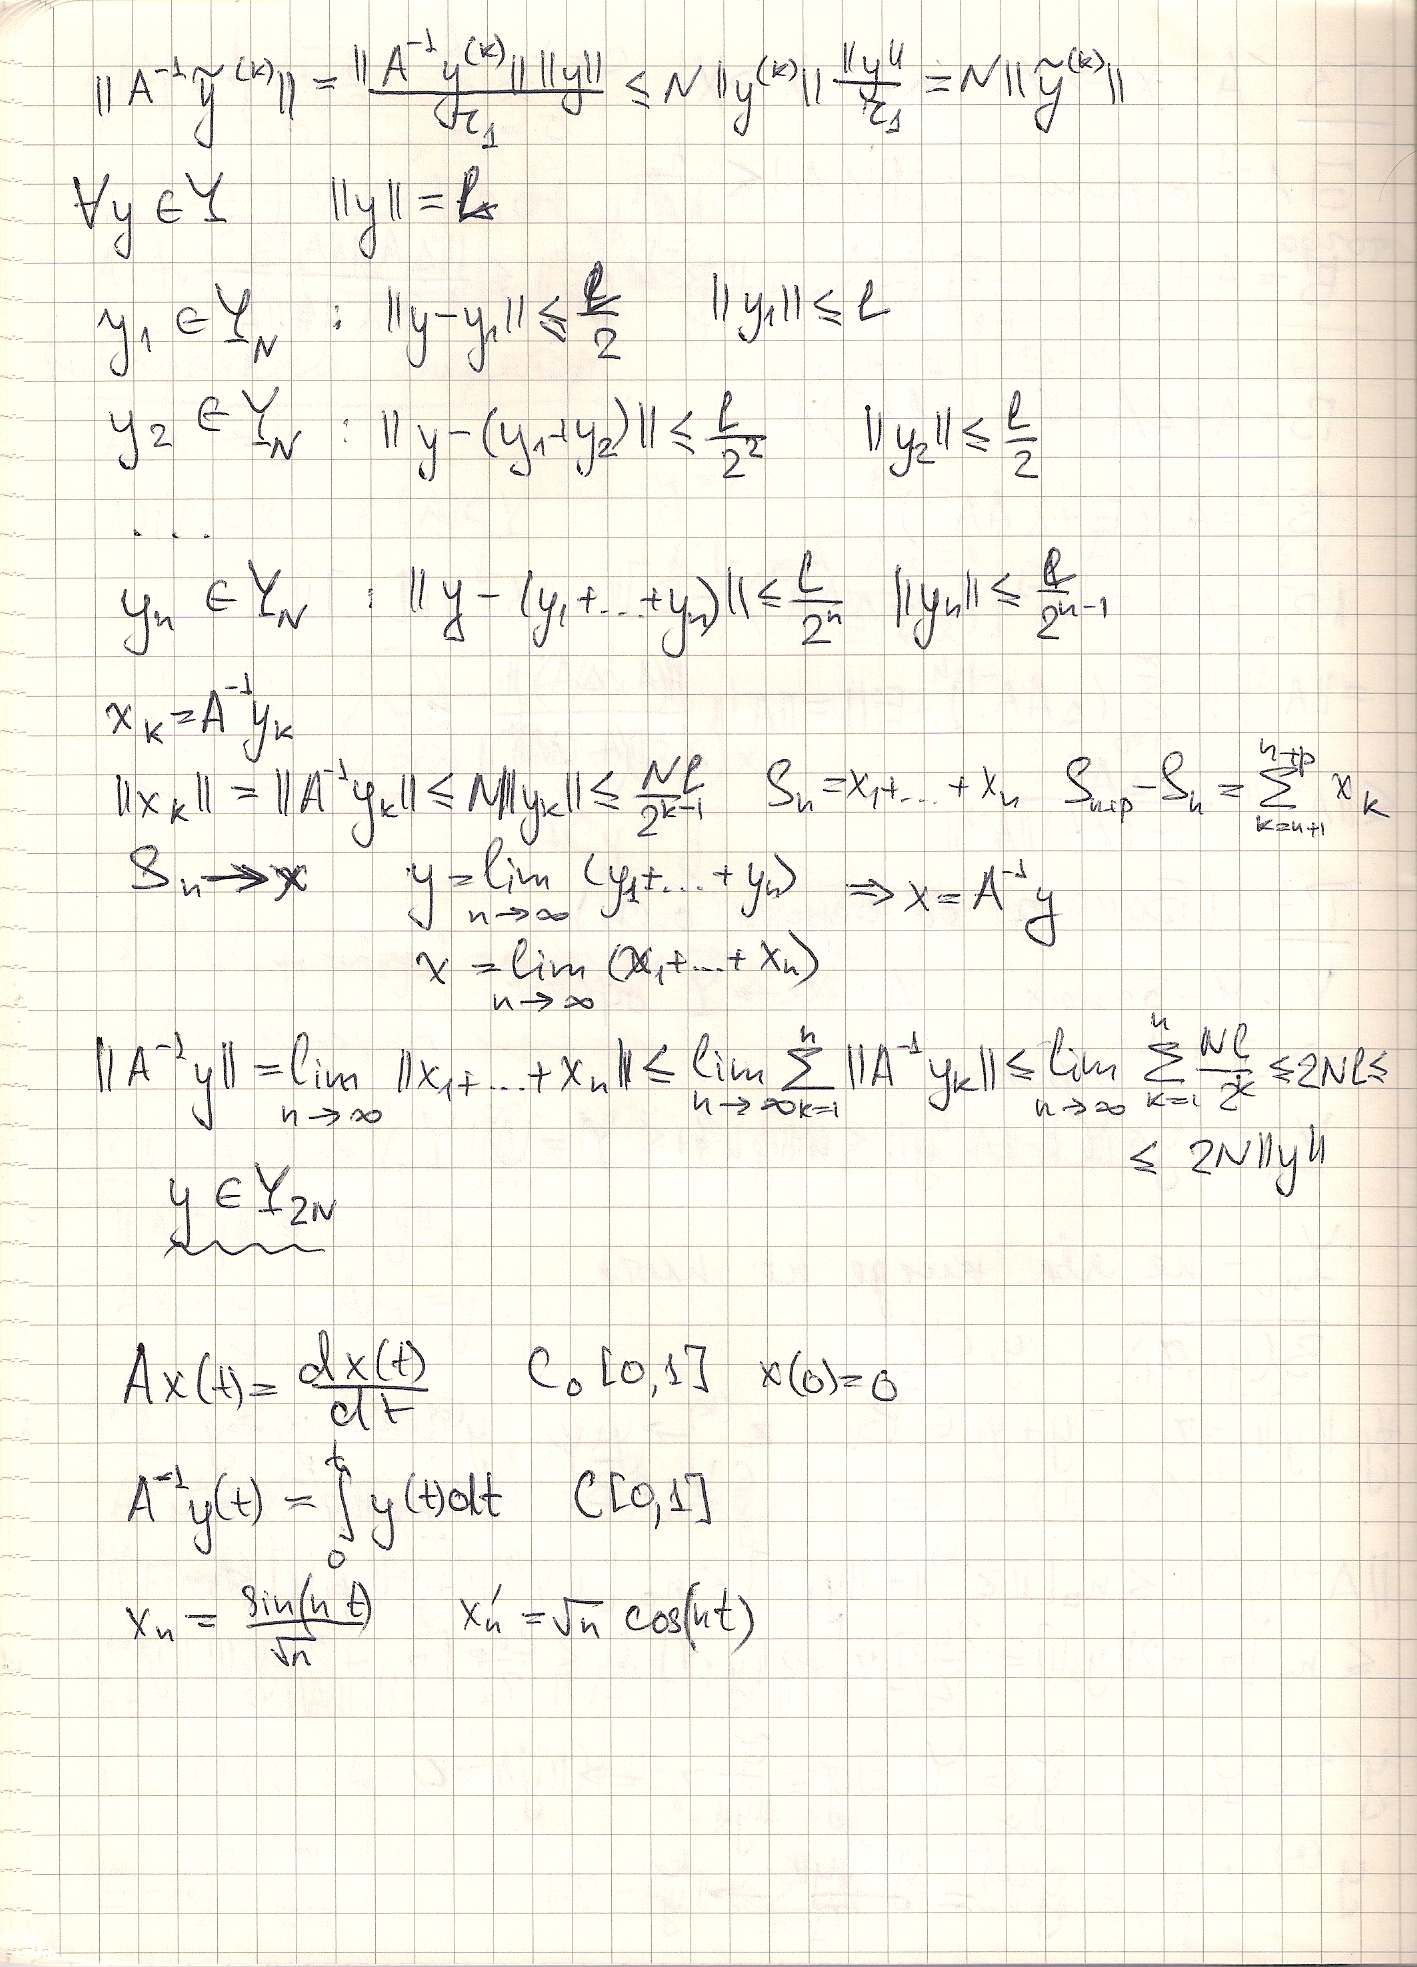 ‖A⁻¹ỹ⁽ᵏ⁾‖ = ‖A⁻¹y⁽ᵏ⁾‖ ‖y‖ / r₁ ≤ N‖y⁽ᵏ⁾‖ ‖y‖ / r₁ = N‖ỹ⁽ᵏ⁾‖
∀y ∈ Y ‖y‖ = l
y₁ ∈ Y_N : ‖y−y₁‖ ≤ l/2 ‖y₁‖ ≤ l
y₂ ∈ Y_N : ‖y−(y₁+y₂)‖ ≤ l/2² ‖y₂‖ ≤ l/2
...
yₙ ∈ Y_N : ‖y − (y₁+...+yₙ)‖ ≤ l/2ⁿ ‖yₙ‖ ≤ l/2ⁿ⁻¹
x_k = A⁻¹y_k
‖x_k‖ = ‖A⁻¹y_k‖ ≤ N‖y_k‖ ≤ Nl/2ᵏ⁻¹ Sₙ = x₁+...+xₙ Sₙ₊ₚ−Sₙ = ∑_{k=n+1}^{n+p} x_k
Sₙ → x y = lim_{n→∞} (y₁+...+yₙ) ⇒ x = A⁻¹y
x = lim_{n→∞} (x₁+...+xₙ)
‖A⁻¹y‖ = lim_{n→∞} ‖x₁+...+xₙ‖ ≤ lim_{n→∞} ∑_{k=1}^{n} ‖A⁻¹y_k‖ ≤ lim_{n→∞} ∑_{k=1}^{n} Nl/2ᵏ ≤ 2Nl ≤
≤ 2N‖y‖
y ∈ Y_{2N}
Ax(t) = dx(t)/dt C₀[0,1] x(0)=0
A⁻¹y(t) = ∫₀ᵗ y(t)dt C[0,1]
xₙ = sin(nt)/√n xₙ′ = √n cos(nt)